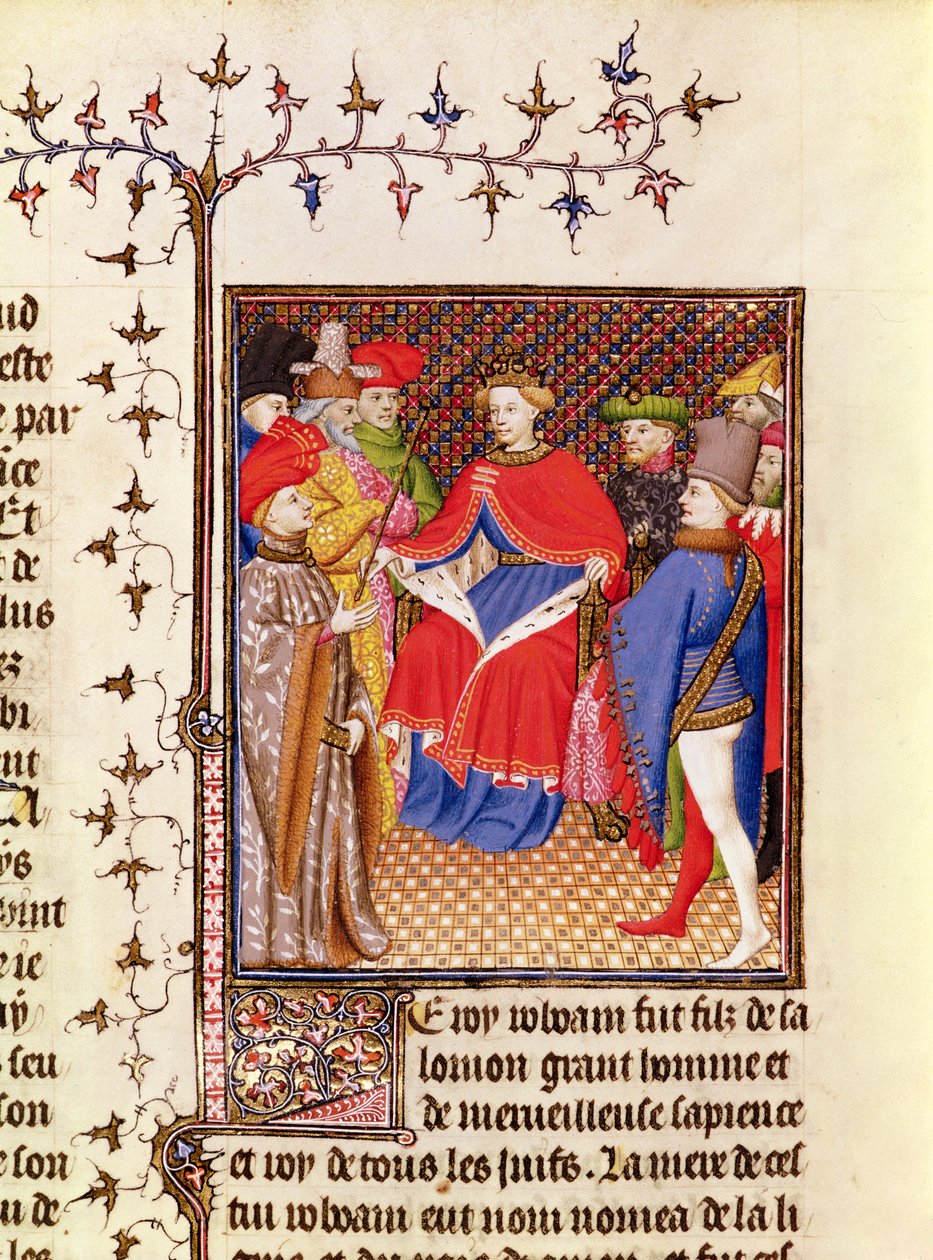 uid
este
e par
ice
Et
t de
lus
ez
bi
ent
ys
vint
rie
ay
seu
son
e son
u de
les
LE roy roboam fut filz de sa
lomon grant homme et
de merueilleuse sapience
et roy de tous les juifs. La mere de ces
tui roboam eut nom nomea de la li